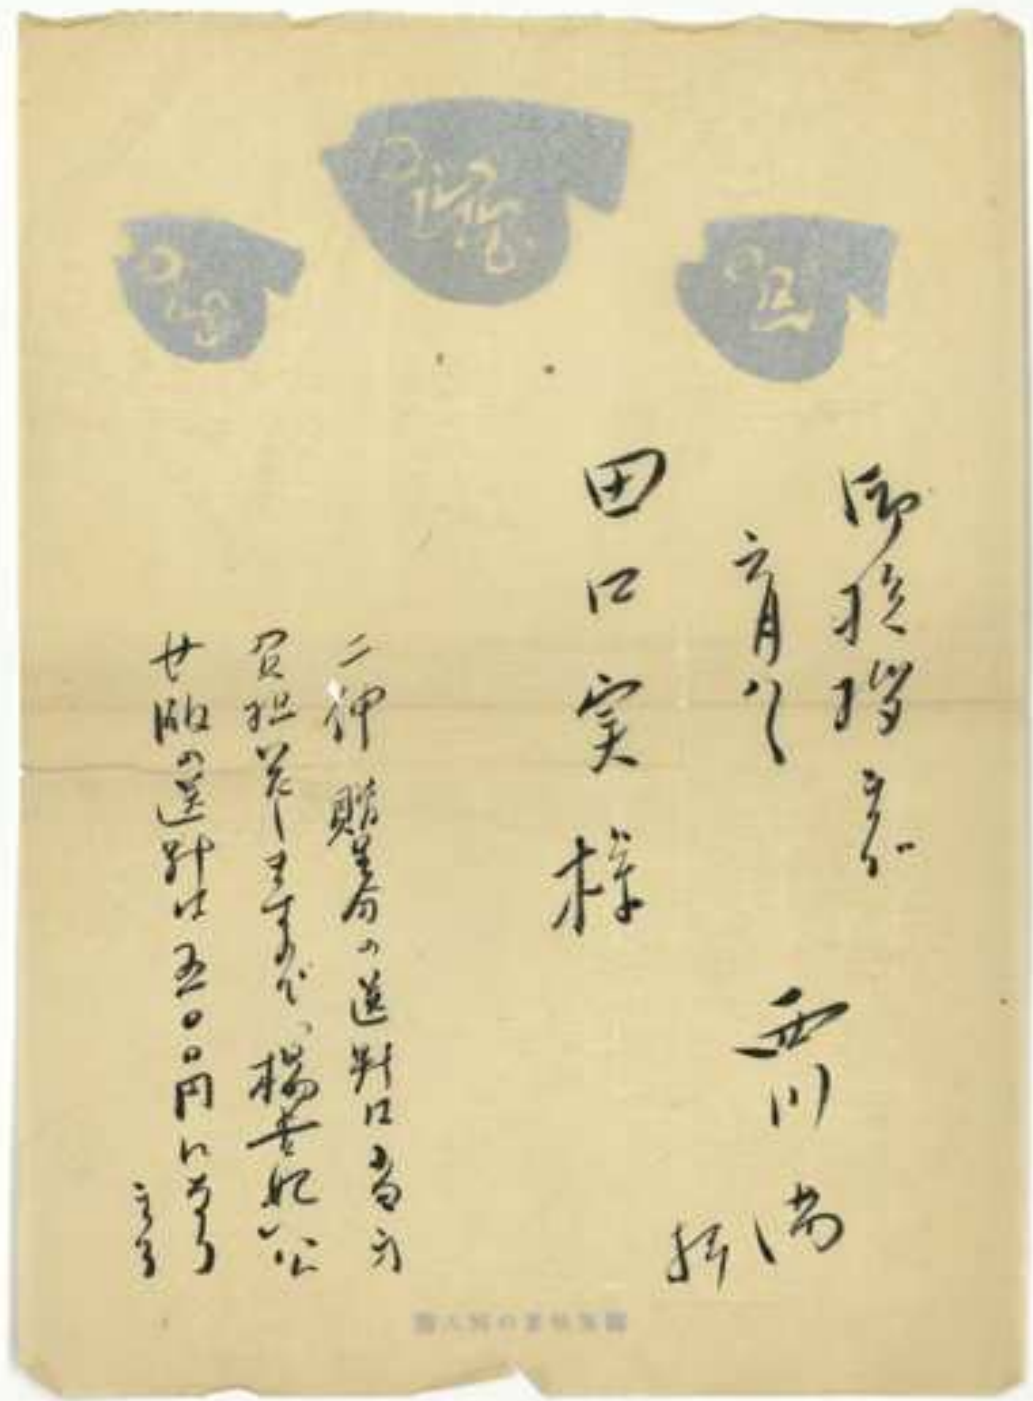 御挨拶まで
六月八日
西川満
拝
田口実様
二伸 贈呈分の送料は当方
負担致しますが、楊貴妃公
廿版の送料は五〇〇円になり
ます